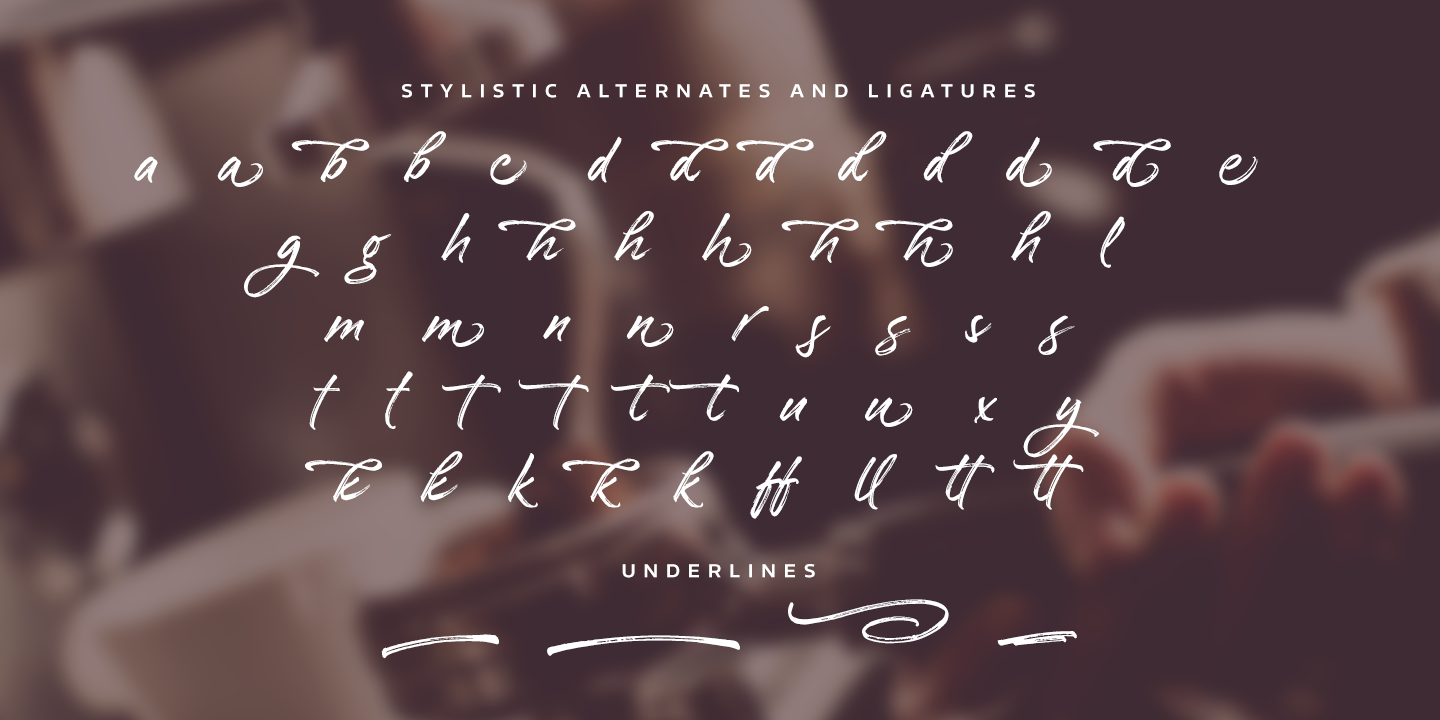 STYLISTIC ALTERNATES AND LIGATURES
a a b b c d d d d d d d e
g g h h h h h h h l
m m n n r s s s s
t t t t t t u u x y
k k k k k ff ll tt tt
UNDERLINES